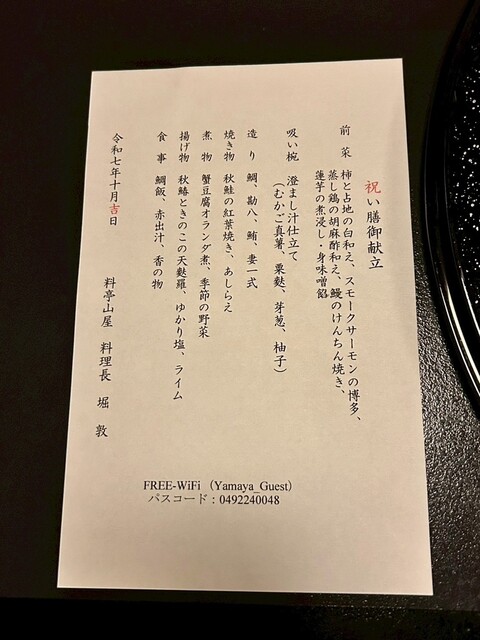 祝い膳御献立
前 菜 柿と占地の白和え、スモークサーモンの博多、
蒸し鶏の胡麻酢和え、鰻のけんちん焼き、
蓮芋の煮浸し・身味噌餡
吸い椀 澄まし汁仕立て
（むかご真薯、粟麩、芽葱、柚子）
造 り 鯛、勘八、鮪、妻一式
焼き物 秋鮭の紅葉焼き、あしらえ
煮 物 蟹豆腐オランダ煮、季節の野菜
揚げ物 秋鰆ときのこの天麩羅、ゆかり塩、ライム
食 事 鯛飯、赤出汁、香の物
令和七年十月吉日
料亭山屋 料理長 堀 敦
FREE-WiFi（Yamaya_Guest）
パスコード：0492240048